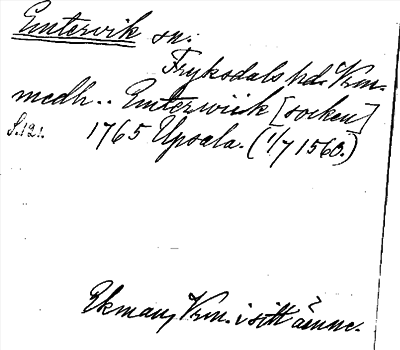 Emtervik sn.
Fryksdals hd. Vrm.
medh .. Emterwiik [socken]
S. 121. 1765 Upsala. (1/7 1560.)
Ekman, Vrm. i sitt ämne.